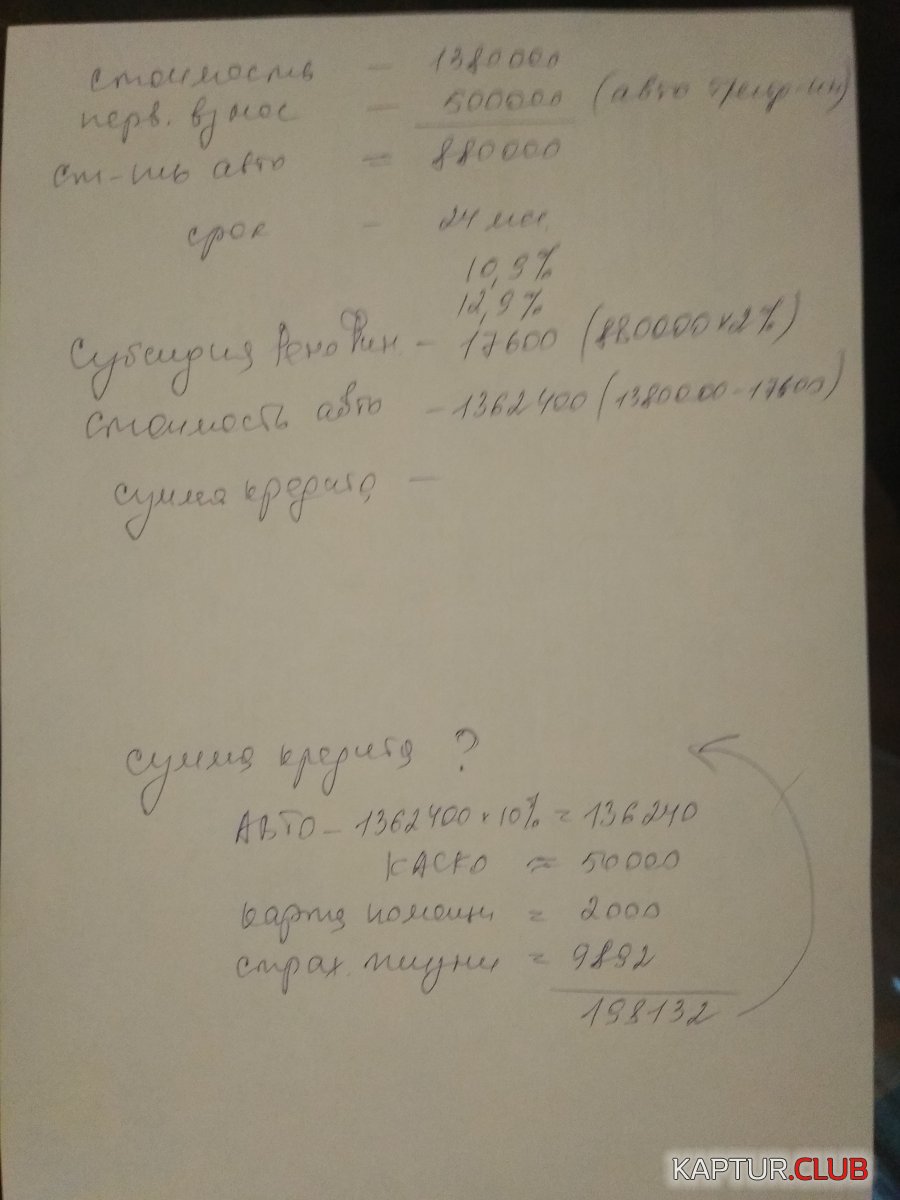 стоимость - 1380000
перв. взнос - 500000 (авто
ст-ть авто = 880000
срок - 24 мес.
10,9%
12,9%
Субсидия РеноФин. - 17600 (880000×2%)
стоимость авто - 1362400 (1380000-17600)
сумма кредита -
сумма кредита ?
АВТО - 1362400×10% = 136240
КАСКО ≈ 50000
карта помощи = 2000
страх. жизни = 9892
198132
KAPTUR.CLUB